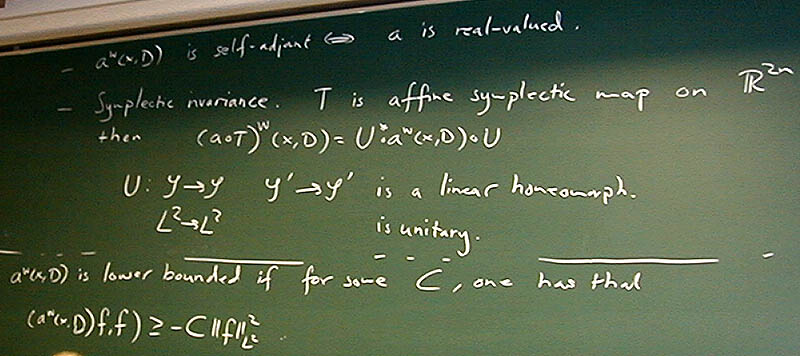 - aʷ(x,D) is self-adjoint ⇔ a is real-valued.
- Symplectic invariance. T is affine symplectic map on ℝ²ⁿ
then (a∘T)ʷ(x,D) = U*∘aʷ(x,D)∘U
U: 𝒮→𝒮 𝒮'→𝒮' is a linear homeomorph.
L²→L² is unitary.
aʷ(x,D) is lower bounded if for some C, one has that
(aʷ(x,D)f,f) ≥ -C‖f‖²_L².